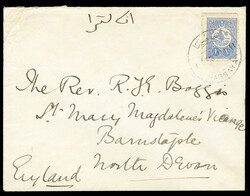 انكلترا
The Rev. R. K. Boggis
St. Mary Magdalene's Vicarage
Barnstaple
North Devon
England